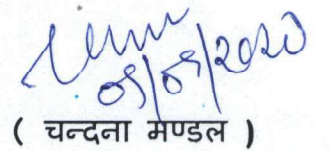 08/09/2020
( चन्दना मण्डल )